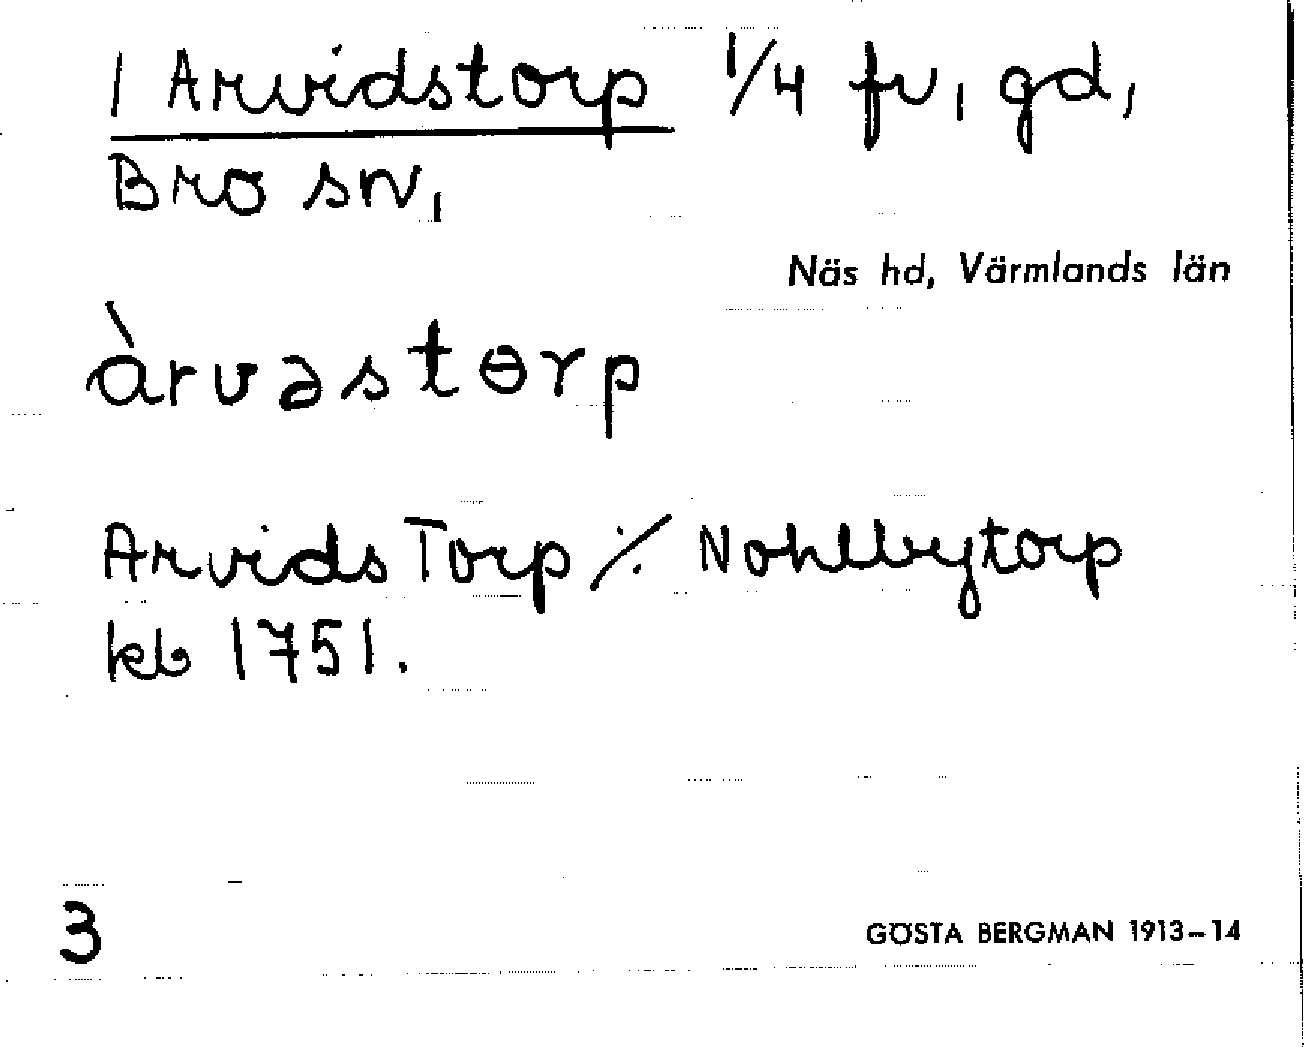 1 Arvidstorp 1/4 fv, gd,
Bro sn,
Näs hd, Värmlands län
àrvəstɵrp
Arvids Torp ⁒ Nohlbytorp
kb 1751.
3
GÖSTA BERGMAN 1913–14